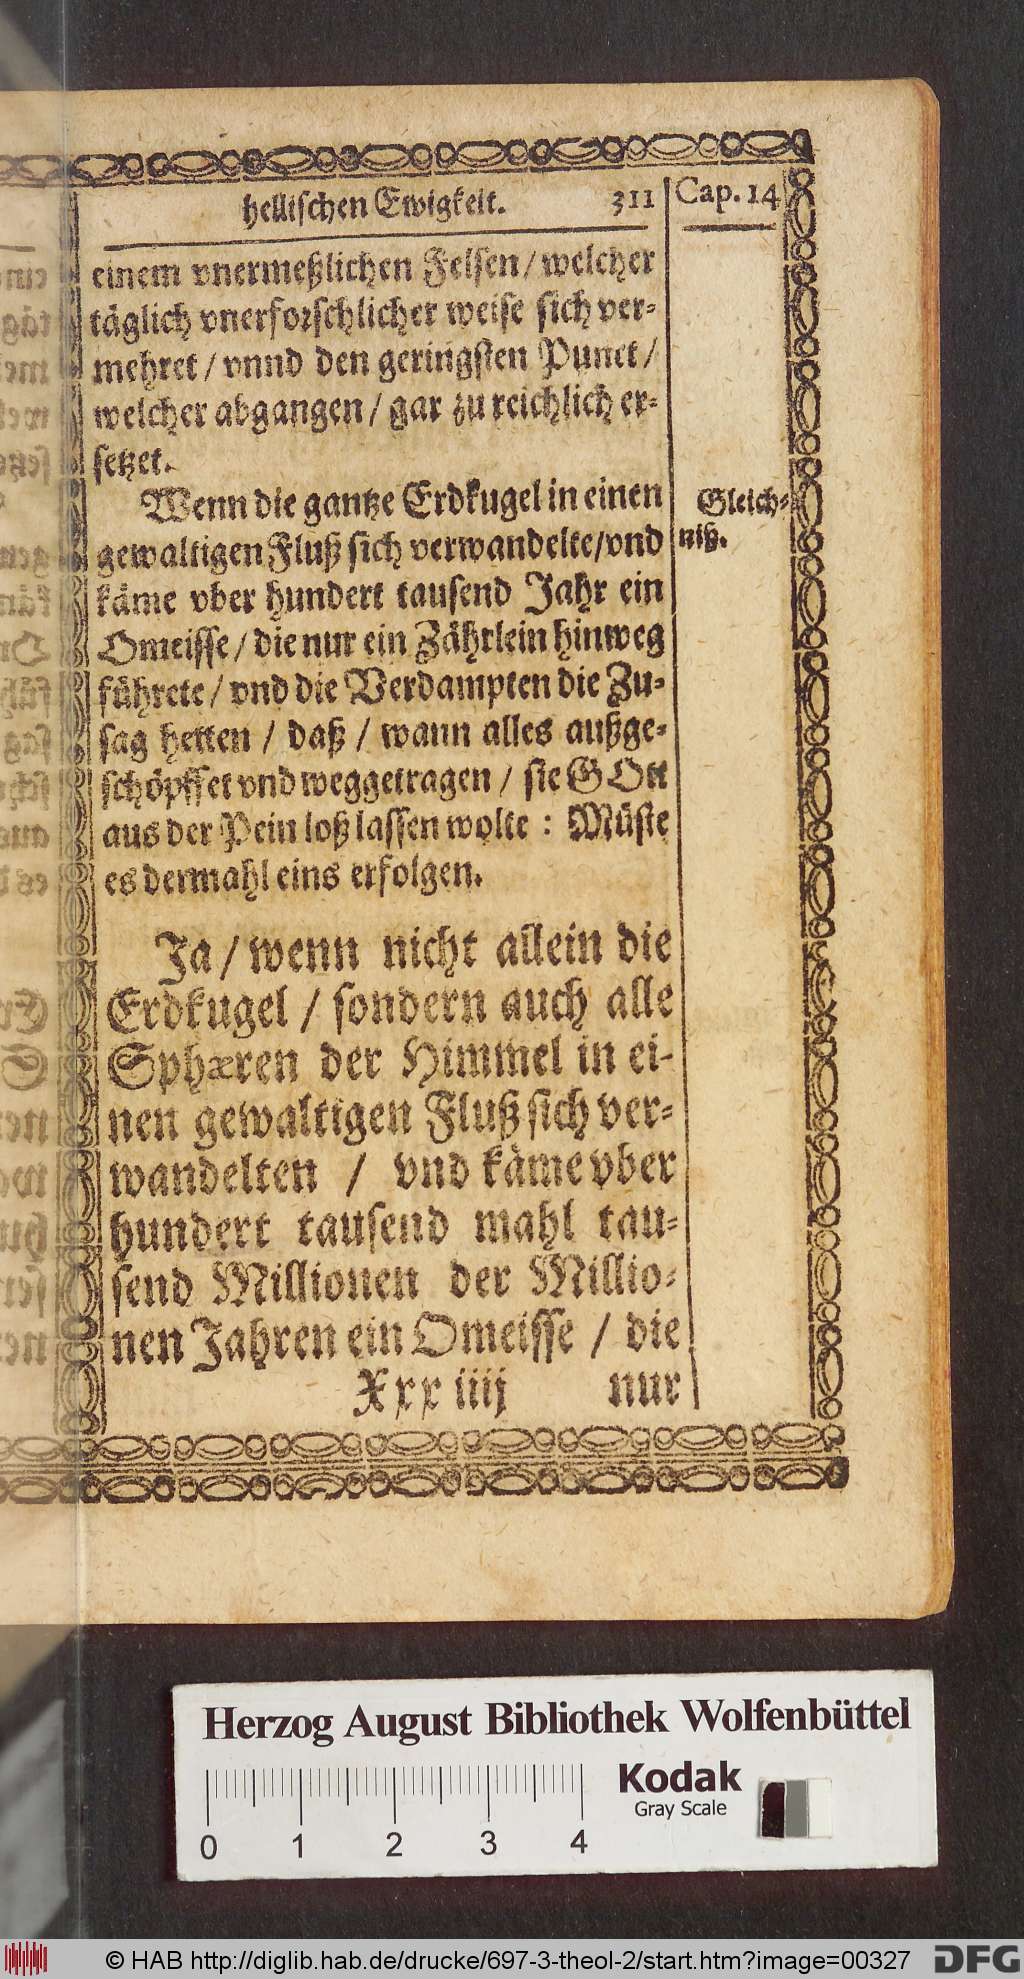 hellischen Ewigkeit. 311 Cap. 14
einem vnermeßlichen Felsen / welcher
täglich vnerforschlicher weise sich ver-
mehret / vnnd den geringsten Punct /
welcher abgangen / gar zu reichlich er-
setzet.
Wenn die gantze Erdkugel in einen
gewaltigen Fluß sich verwandelte/vnd
käme vber hundert tausend Jahr ein
Omeisse / die nur ein Zährlein hinweg
führete / vnd die Verdampten die Zu-
sag hetten / daß / wann alles außge-
schöpffet vnd weggetragen / sie GOtt
aus der Pein loß lassen wolte : Müste
es dermahl eins erfolgen.
Gleich-
niß.
Ja / wenn nicht allein die
Erdkugel / sondern auch alle
Sphæren der Himmel in ei-
nen gewaltigen Fluß sich ver-
wandelten / vnd käme vber
hundert tausend mahl tau-
send Millionen der Millio-
nen Jahren ein Omeisse / die
Xxx iiij nur
Herzog August Bibliothek Wolfenbüttel
Kodak
Gray Scale
0 1 2 3 4
© HAB http://diglib.hab.de/drucke/697-3-theol-2/start.htm?image=00327 DFG